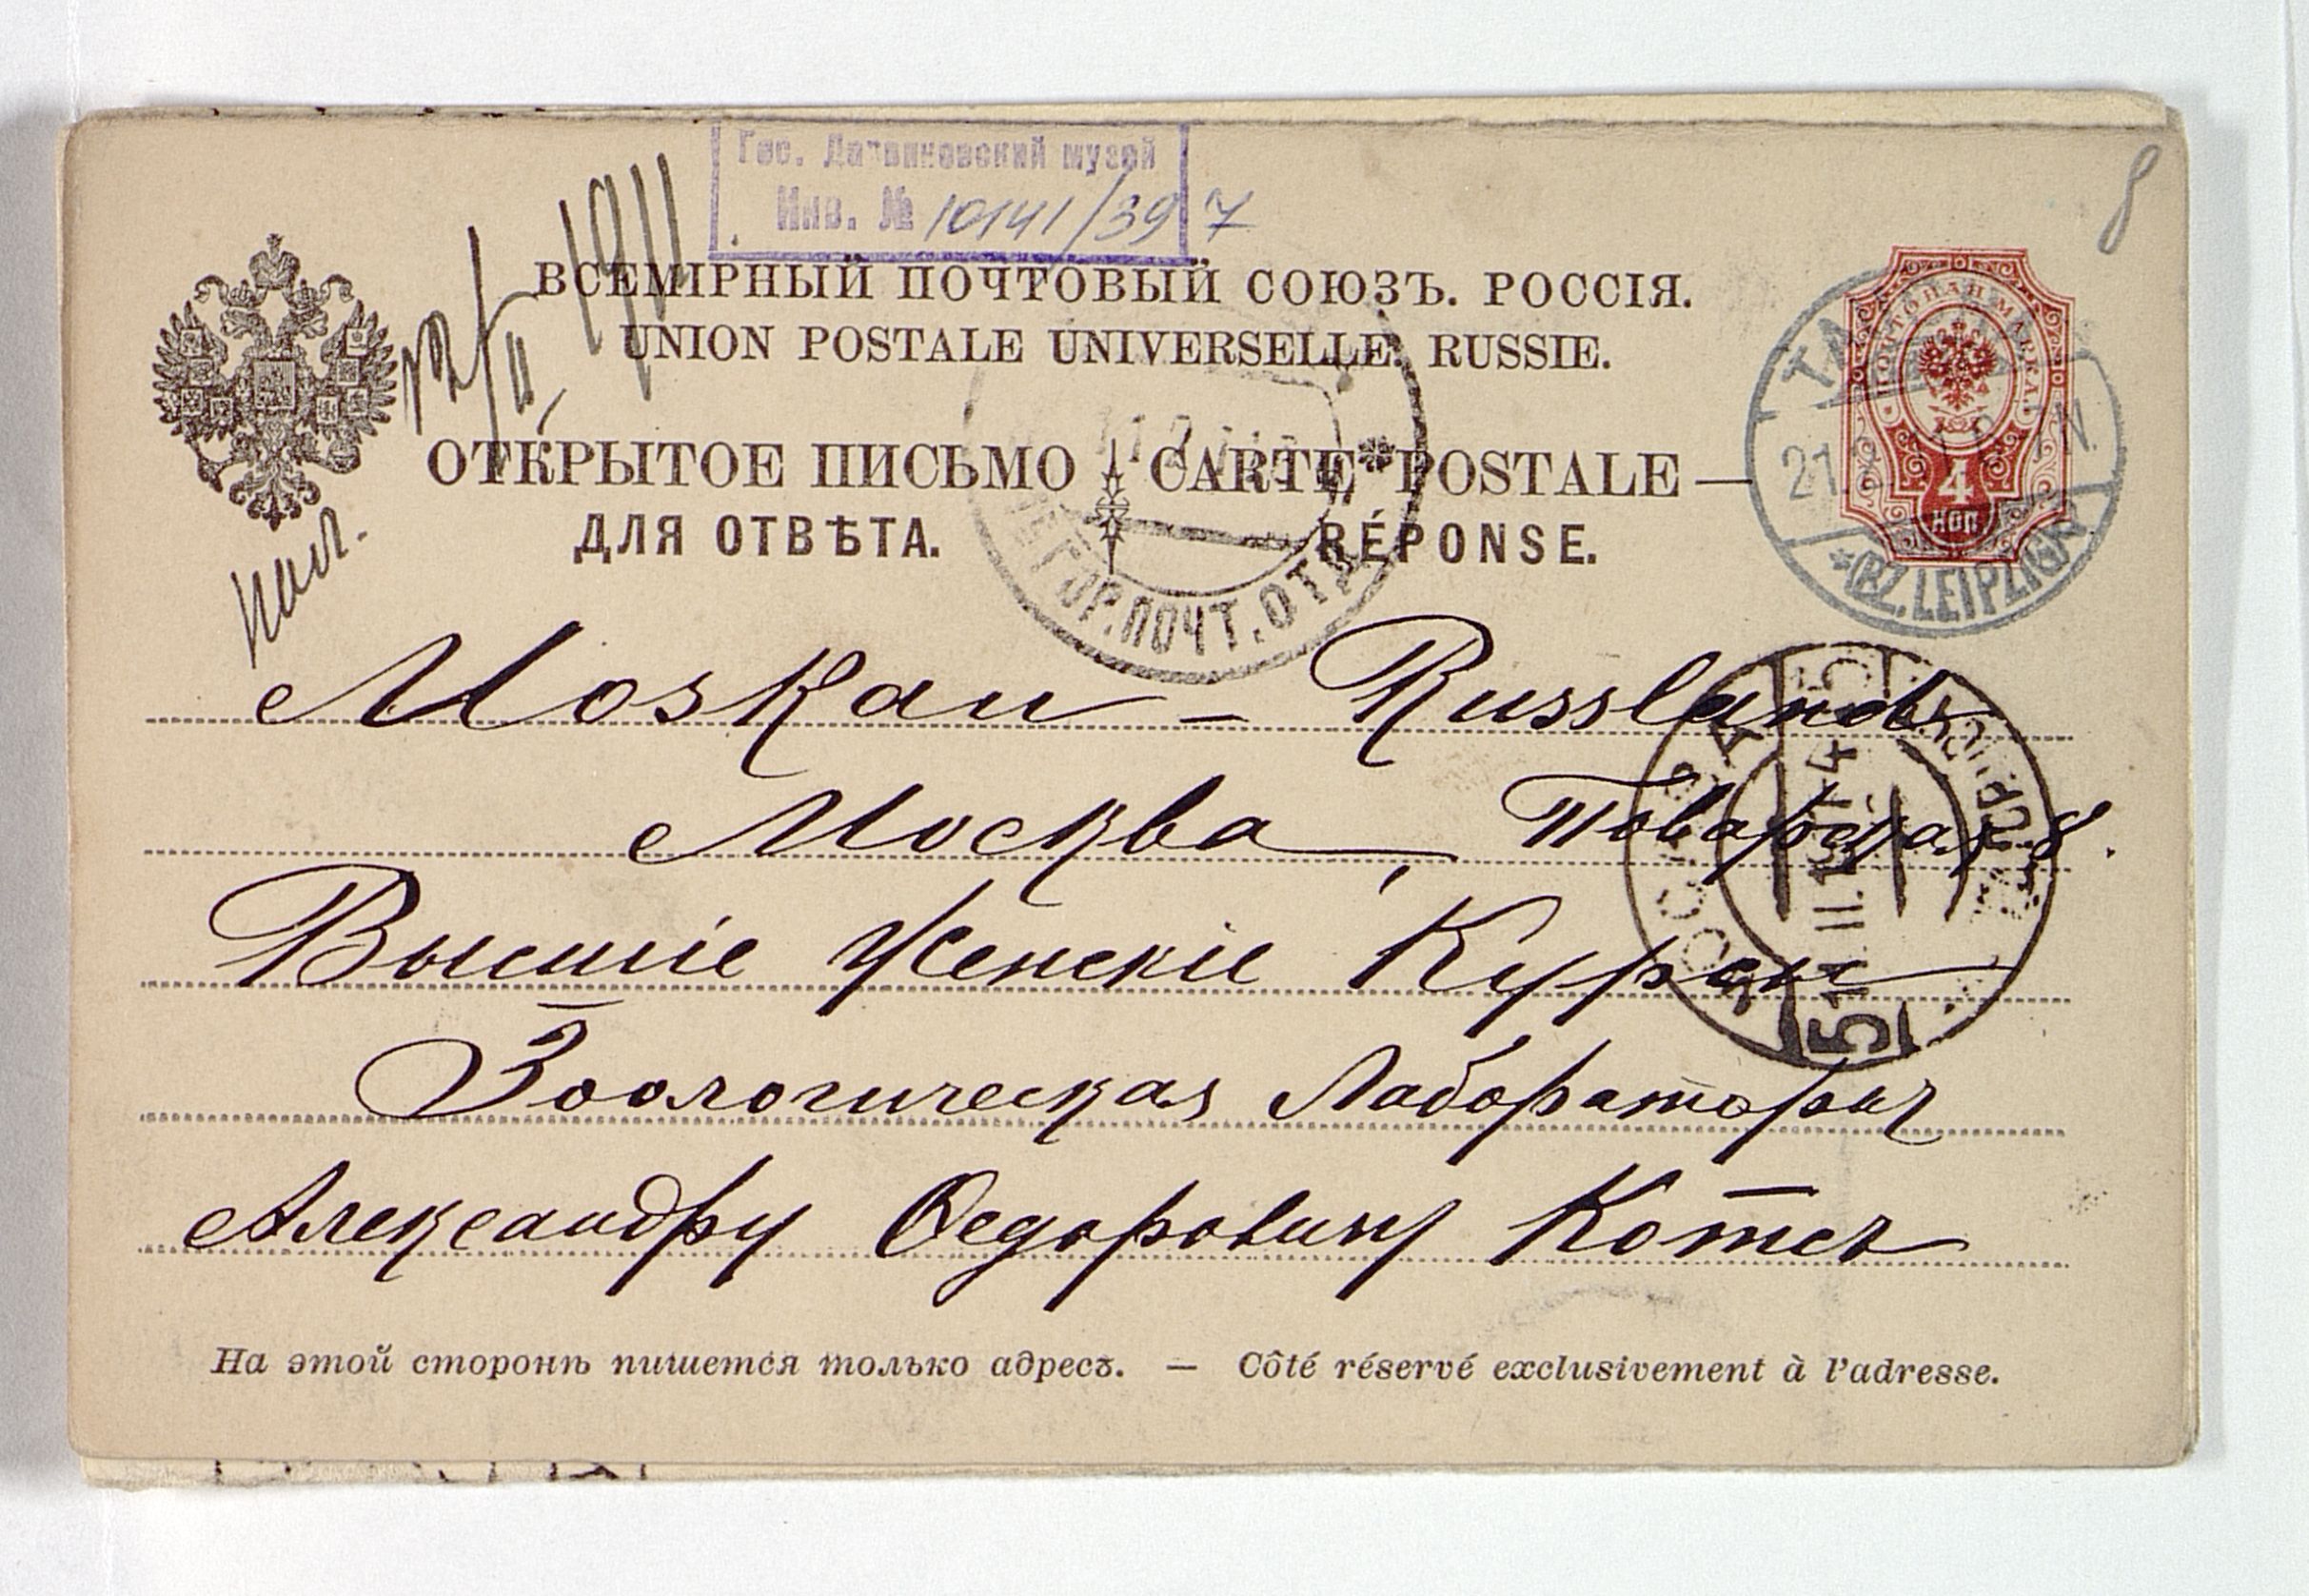 Гос. Дарвиновский музей
Инв. № 10141/397
8
12/II 1911
ВСЕМІРНЫЙ ПОЧТОВЫЙ СОЮЗЪ. РОССІЯ.
UNION POSTALE UNIVERSELLE. RUSSIE.
ОТКРЫТОЕ ПИСЬМО CARTE POSTALE
ДЛЯ ОТВѢТА. RÉPONSE.
ПОЧТОВАЯ МАРКА.
4
КОП
*(BZ. LEIPZIG)
ГОР. ПОЧТ. ОТД
Moskau – Russland
Москва, Поварская 8.
Высшіе Женскіе Курсы
Зоологическая Лабораторія
Александру Ѳедоровичу Котсъ
На этой сторонѣ пишется только адресъ. — Côté réservé exclusivement à l'adresse.